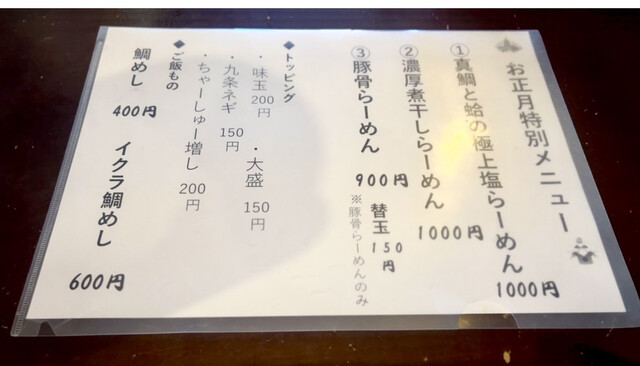 お正月特別メニュー
①真鯛と蛤の極上塩らーめん 1000円
②濃厚煮干しらーめん 1000円
③豚骨らーめん 900円
替玉150円
※豚骨らーめんのみ
◆トッピング
・味玉200円 ・大盛 150円
・九条ネギ 150円
・ちゃーしゅー増し 200円
◆ご飯もの
鯛めし 400円 イクラ鯛めし 600円